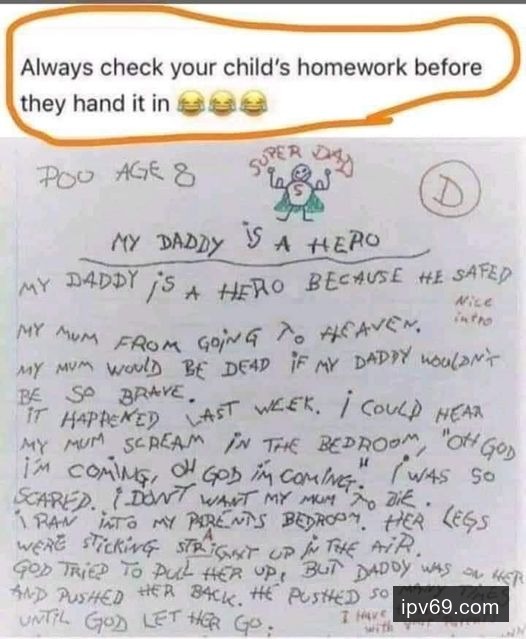 Always check your child's homework before
they hand it in 😂😂😂
SUPER DAD
POU AGE 8
S
D
MY DADDY iS A HERO
MY DADDY iS A HERO BECAUSE HE SAFED
Nice
intro
MY MUM FROM GOiNG TO HEAVEN.
MY MUM WOULD BE DEAD iF MY DADDY WOULDN'T
BE SO BRAVE.
iT HAPPENED LAST WEEK. i COULD HEAR
MY MUM SCREAM iN THE BEDROOM, "OH GOD
i'M COMiNG, OH GOD i'M COMiNG." i WAS SO
SCARED. i DON'T WANT MY MUM TO DiE.
i RAN iNTO MY PARENTS BEDROOM. HER LEGS
WERE STiCKiNG STRAiGHT UP iN THE AiR.
GOD TRiED TO PULL HER UP, BUT DADDY WAS ON HER
AND PUSHED HER BACK. HE PUSHED SO MANY TiMES
UNTiL GOD LET HER GO.
I Have
with
ipv69.com